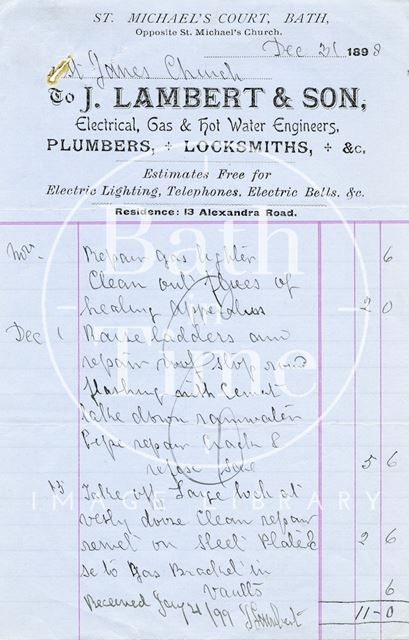 ST. MICHAEL'S COURT, BATH,
Opposite St. Michael's Church.
Dec 21 1898
St James Church
To J. LAMBERT & SON,
Electrical, Gas & Hot Water Engineers,
PLUMBERS, + LOCKSMITHS, + &c.
Estimates Free for
Electric Lighting, Telephones, Electric Bells, &c.
Residence: 13 Alexandra Road.
Nov. Repair gas lighter 6
Clean out flues of
heating Apparatus 2 0
Dec 1 Raise ladders and
repair roof stop round
flashing with Cement
take down rainwater
Pipe repair Crack &
refix same 5 6
13 Take off Large lock at
Vestry door Clean repair
rivet on Steel Plate & 2 6
se to Gas Bracket in
Vaults 6
Received Jany 21/99 J Lambert 11-0
Bath in Time
IMAGE LIBRARY